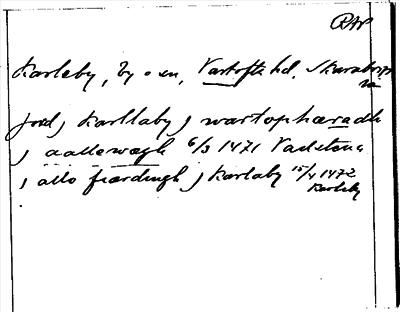 RAP
Karleby, by o sn, Vartofta hd, Skarab.
jord j Karllaby j wartophæradh
j aallewægh 6/3 1471 Vadstena
j allo fiærdungh j Karlaby 15/4 1472
Karleby